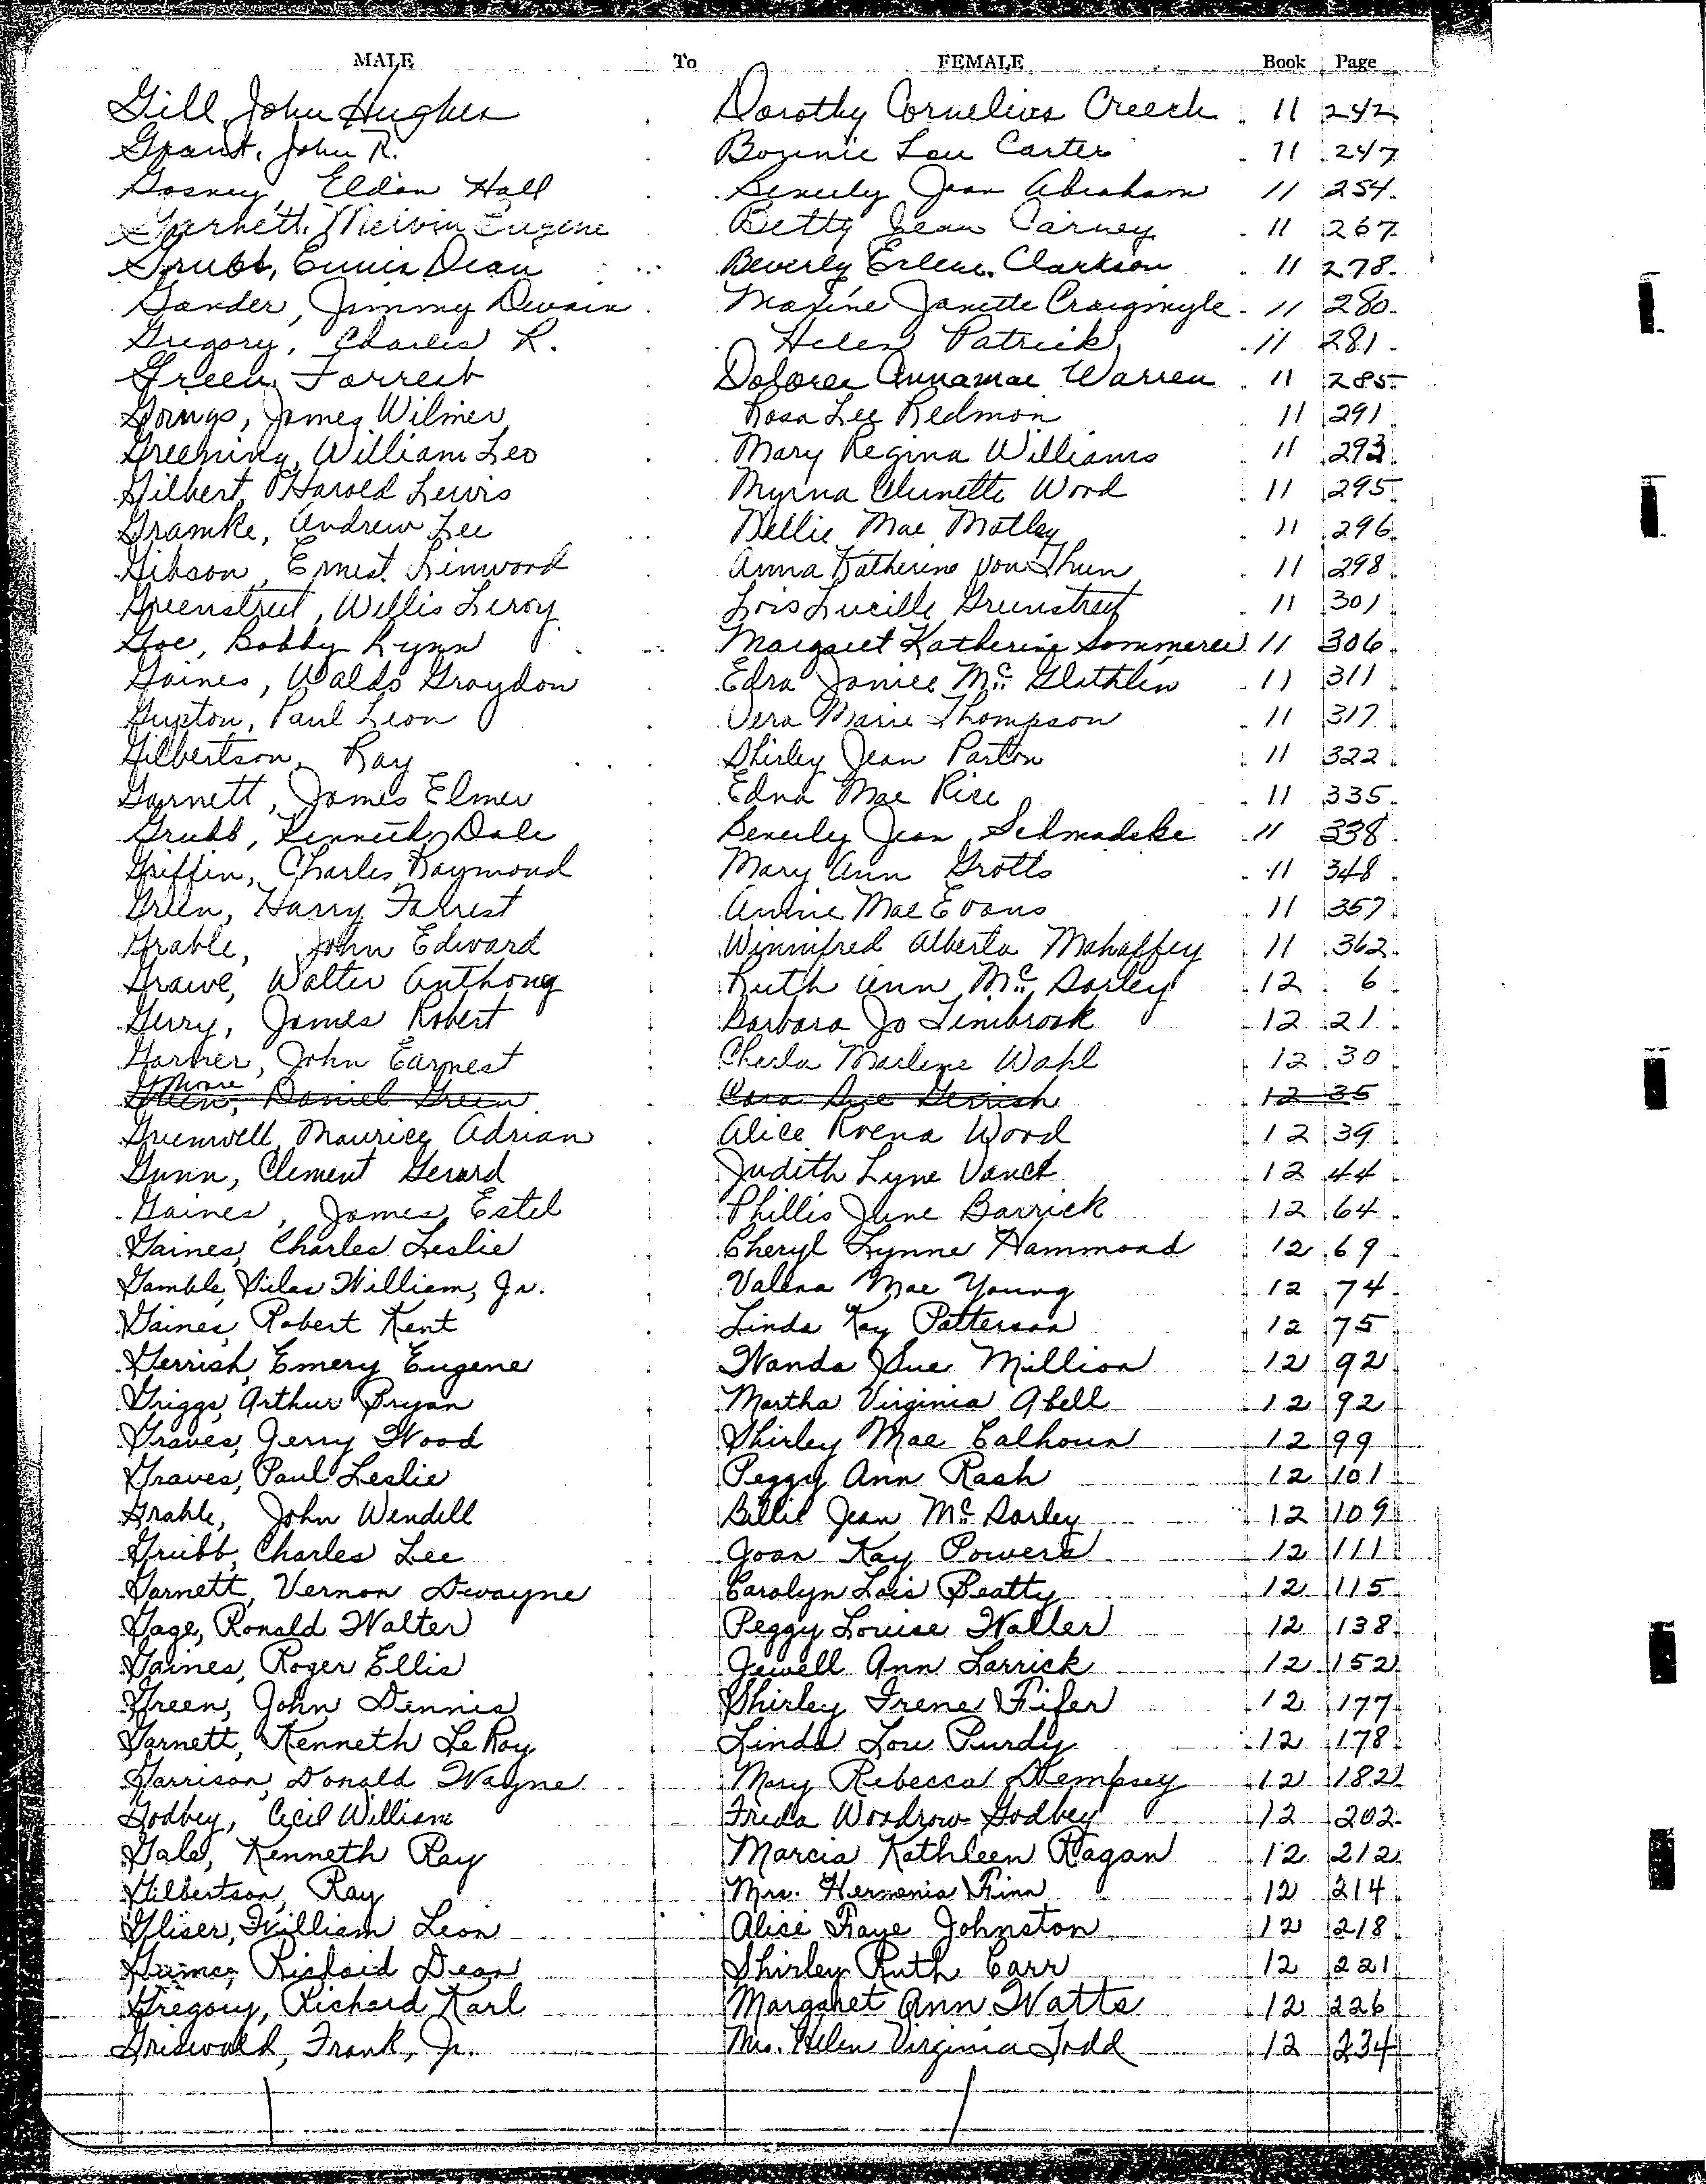 MALE To FEMALE Book Page
Gill, John Hughes Dorothy Cornelius Creech 11 242
Grant, John R. Bonnie Lou Carter 11 247
Gosney, Eldon Hall Beverly Jean Abraham 11 254
Garnett, Melvin Eugene Betty Jean Carney 11 267
Grubb, Dean Beverly Erlene Clarkson 11 278
Gander, Jimmy Dwain Maxine Janette Craigmyle 11 280
Gregory, Charles R. Helen Patrick 11 281
Green, Forrest Dolores Annamae Warren 11 285
Goings, James Wilmer Rosa Lee Redmon 11 291
Greening, William Leo Mary Regina Williams 11 293
Gilbert, Harold Lewis Myrna Wood 11 295
Gramke, Andrew Lee Nellie Mae Motley 11 296
Gibson, Ernest Linwood Anna Katherine Von Thun 11 298
Greenstreet, Willis Leroy Lois Lucille Greenstreet 11 301
Goe, Bobby Lynn Margaret Katherine Sommerer 11 306
Gaines, Waldo Graydon Edra Janice Mc Glothlin 11 311
Gupton, Paul Leon Vera Marie Thompson 11 317
Gilbertson, Ray Shirley Jean Parton 11 322
Garnett, James Elmer Edna Mae Rice 11 335
Grubb, Kenneth Dale Beverly Jean Schmadeke 11 338
Griffin, Charles Raymond Mary Ann Grotts 11 348
Green, Harry Forrest Annie Mae Evans 11 357
Grable, John Edward Winnifred Alberta Mahaffey 11 362
Grawe, Walter Anthony Ruth Ann Mc Sorley 12 6
Gerry, James Robert Barbara Jo Limbrook 12 21
Garner, John Earnest Cherla Marlene Wahl 12 30
Moore
Green, Daniel Green Cora Sue Gerrish 12 35
Greenwell, Maurice Adrian Alice Roena Wood 12 39
Gunn, Clement Gerard Judith Lyne Vance 12 44
Gaines, James Estel Phillis June Barrick 12 64
Gaines, Charles Leslie Cheryl Lynne Hammond 12 69
Gamble, Silas William, Jr. Valena Mae Young 12 74
Gaines, Robert Kent Linda Kay Patterson 12 75
Gerrish, Emery Eugene Wanda Sue Million 12 92
Griggs, Arthur Bryan Martha Virginia Abell 12 92
Graves, Jerry Wood Shirley Mae Calhoun 12 99
Graves, Paul Leslie Peggy Ann Rash 12 101
Grable, John Wendell Billie Jean Mc Sorley 12 109
Grubb, Charles Lee Joan Kay Powers 12 111
Garnett, Vernon Dwayne Carolyn Lois Beatty 12 115
Gage, Ronald Walter Peggy Louise Waller 12 138
Gaines, Roger Ellis Jewell Ann Larrick 12 152
Green, John Dennis Shirley Irene Fifer 12 177
Garnett, Kenneth LeRoy Linda Lou Purdy 12 178
Garrison, Donald Wayne Mary Rebecca Dempsey 12 182
Godbey, Cecil William Freda Woodrow Godbey 12 202
Gale, Kenneth Ray Marcia Kathleen Ragan 12 212
Gilbertson, Ray Mrs. Hermenia Finn 12 214
Gliser, William Leon Alice Faye Johnston 12 218
Richard Dean Shirley Ruth Carr 12 221
Gregory, Richard Karl Margaret Ann Watts 12 226
Griswold, Frank, Jr. Mrs. Helen Virginia Todd 12 234